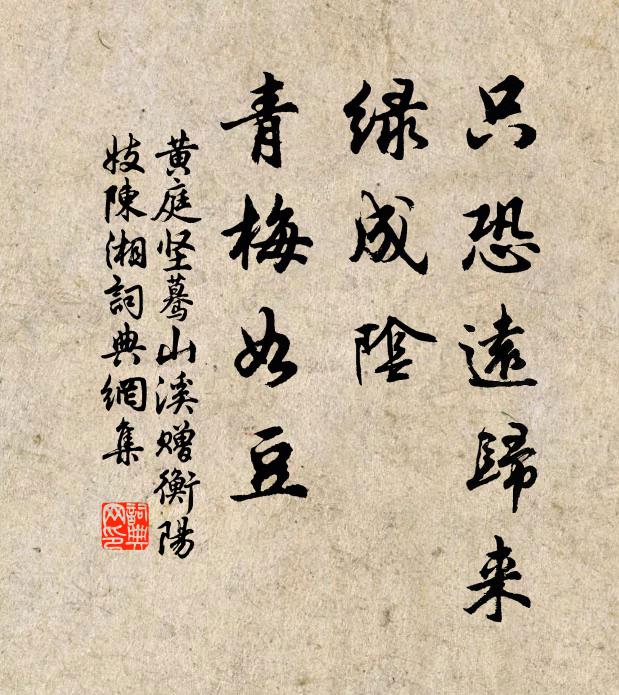 只恐遠歸来
绿成陰
青梅如豆
黄庭坚驀山溪赠衡陽
妓陳湘詞典網集
詞典
网印